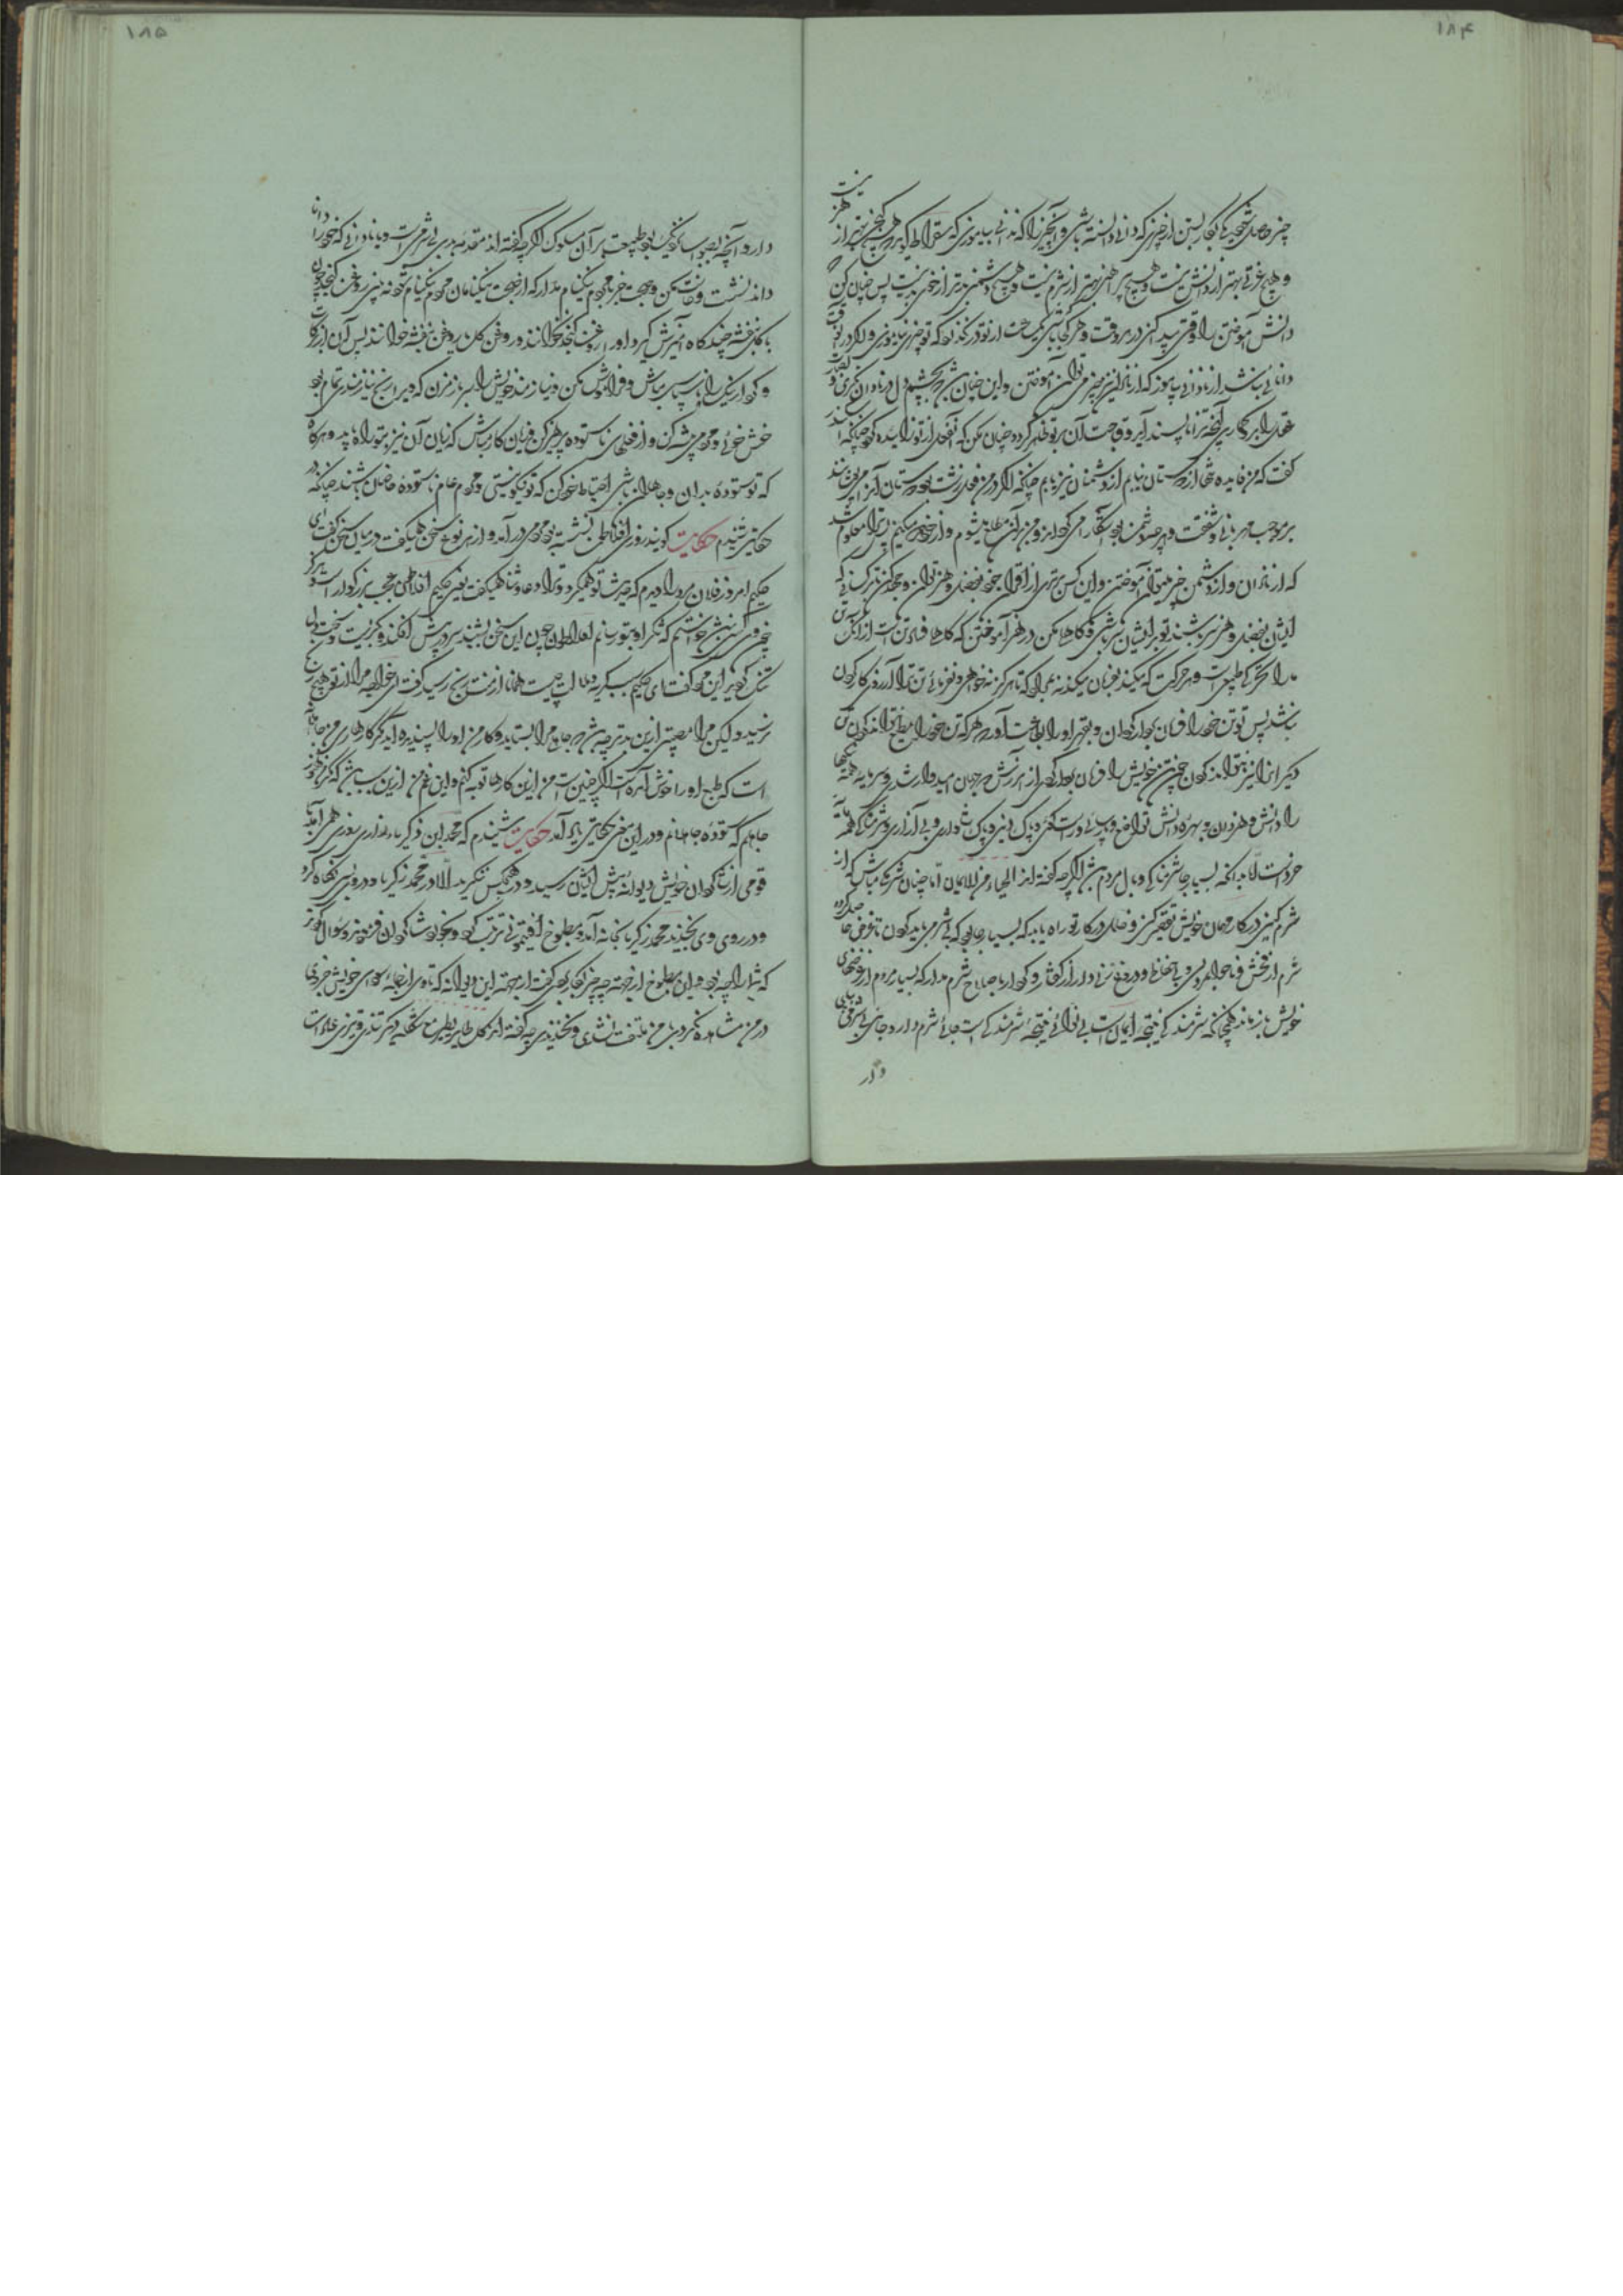 ۱۸۴
نیست
چیز حاصل شود یکی بکار بستن از چیزی که دانی و دانسته باشی و آنچیز را که ندانی بیاموزی که سقراط گوید هیچ گنجی بهتر از هنر
و هیچ عزتی بهتر از دانش نیست و هیچ پیرایه بهتر از شرم نیست و هیچ دشمنی بتر از خوی بد نیست پس چنان کن
دانش آموختن را وقتی پیدا مکن در هر وقت و هر کجا باشی ساعت از تو در نگذرد که تو چیزی نیاموزی و اگر در آنوقت
دانائی نباشد از نادانی بیاموز که از نادان نیز چیزی توان آموختن و این چنان باشد که بچشم دل در نادان نگری و
عقل را بر وی گماری آنچه ترا ناپسند آید وقبحت آن بر تو ظاهر گردد چنان مکن که از تو چنانکه اسکندر
گفت که من فایده نه از دوستان یابم از دشمنان نیز یابم چنانکه اگر در من فعلی زشت بود دوستان آنرا میپوشند
بر موجب مهربانی و شفقت و هر چه دشمن بود آشکارا میکند از دشمن آن مطلع میشوم و از خود میکنم پس ترا معلوم شد
که از نادان و از دشمن چیز میتوان آموختن و این کس بهتری از اقران خود بفضل و هنر توان
ایشان بفضل و هنر بهتر باشند تو بر ایشان بهتر باشی و کاهلی مکن در هنر آموختن که کاهلی فساد تن است از آنکه تن
مدان تحرک طبیعی است و هر حرکت که میکند بفرمان میکند نه بمراد که تا هرگز نخواهی و نفرمائی تن ترا آرزوی کار کردن
نباشد پس تو تن خود را فرمان بردار گردان و بقهر او را بطاعت آور که هر که تن خود را مطیع نتواند کردن تن
دیگرانرا نیز نتواند کردن چون تن خویش را فرمان بردار کردی از آموزش هنر جهان امیدوار شدی و سرمایه همه نیکیها
را دانش و هنر دان و بهره دانش تواضع و پارسائی و راست گوئی و پاک دینی و پاک شلواری و بی آزاری و شرمناکی همه مایه
خرد است اما بدانکه بسیار جا شرمناکی وبال مردم باشد اگرچه گفته اند الحیاء من الایمان اما چنان شرمگن مباش که از
شرم کنی در کار مهمان خویش تقصیر کنی و خلل در کار تو راه یابد که بسیار جا بود که بی شرمی باید کردن تا غرض حاصل گردد
شرم از فحش و ناجوانمردی و ناحفاظی و دروغ زنی دار از گفتار و کردار با صلاح شرم مدار که بسیار مردم از غرضهای
خویش باز ماند همچنانکه شرمندگی نتیجه ایمان است بی نوائی نتیجه شرمندگی است جای شرم دار و جای بی شرمی
دار
۱۸۵
دار و آنچه بصواب نزدیک بود طلب پس بر آن سلوک کن اگرچه گفته اند مقدمه بدی بی شرمی است و با نادانی که خود را دانا
داند منشین و صحبت مکن و صحبت جز با مردم نیکنام مدار که از صحبت نیکنامان مردم نیکنام شود نه بینی روغن کنجد چون
با گل بنفشه چندگاه آمیزش گیرد او را روغن کنجد نخوانند و روغن گل یا روغن بنفشه خوانند پس آن از برکات
و کردار نیک را ناسپاس مباش و فراموش مکن و نیازمند خویش را سر باز مزن که ویرا رنج نیازمندی تمام بود
خوش خوئی و مردمی پیشه کن و از فعلهای ناستوده پرهیز کن و زیان کار مباش که زیان آن نیز بتو راه یابد و هرگاه
که تو ستودهٔ بدان و جاهلان باشی احتیاط خود کن که تو نیکو نیستی و مردم عام ناستوده فاضلان باشند چنانکه در
حکایتی شنیدم حکایت گویند روزی افلاطون نشسته بود مردی در آمد و از هر نوع سخن همیگفت در میان سخن گفت ای
حکیم امروز فلان مرد را دیدم که حدیث تو همیکرد و ترا دعا و ثنا همیگفت یعنی حکیم افلاطون عجب بزرگوار است و هرگز
چون وی کس نبیند خواستم که شکر او بتو رسانم افلاطون چون این سخن بشنید سر در پیش افکند و بگریست و سخت دل
تنگ گردید این مرد گفت ای حکیم سبب گریه و ملالت چیست همانا از من رنجی رسید گفت ای خواجه مرا از تو هیچ رنج
نرسید و لیکن مرا مصیبتی ازین بدتر چه باشد که جاهلی مرا بستاید و کار من او را پسندیده آید مگر کارهای من جاهلانه
است که طبع او را خوش آمده است اگر چنین است من ازین کارها توبه کنم و این غم من ازین سبب باشد که مگر من هنوز
جاهلم که ستوده جاهلانم و در این معنی حکایتی یاد آمد حکایت شنیدم که محمد ابن ذکریاء رازی روزی همی آمد با
قومی از شاگردان خویش دیوانه پیش ایشان رسید و در هیچکس ننگرید الا در محمد زکریا و در وی نیک نگاه کرد
و در روی وی بخندید محمد زکریا بخانه آمد و مطبوخ افتیمون ترتیب کرد و بخورد شاگردان وزو سوال کردند
که شما را چه بود و این مطبوخ از جهة چه چیز بکار بردی گفت از جهة این دیوانه که تا وی از سودای خویش جزوی
در من مشاهده نکردی با من ملتفت نشدی و نخندیدی چه گفته اند کل طایر یطیر مع شکله دیگر تندی و تیزی عادت